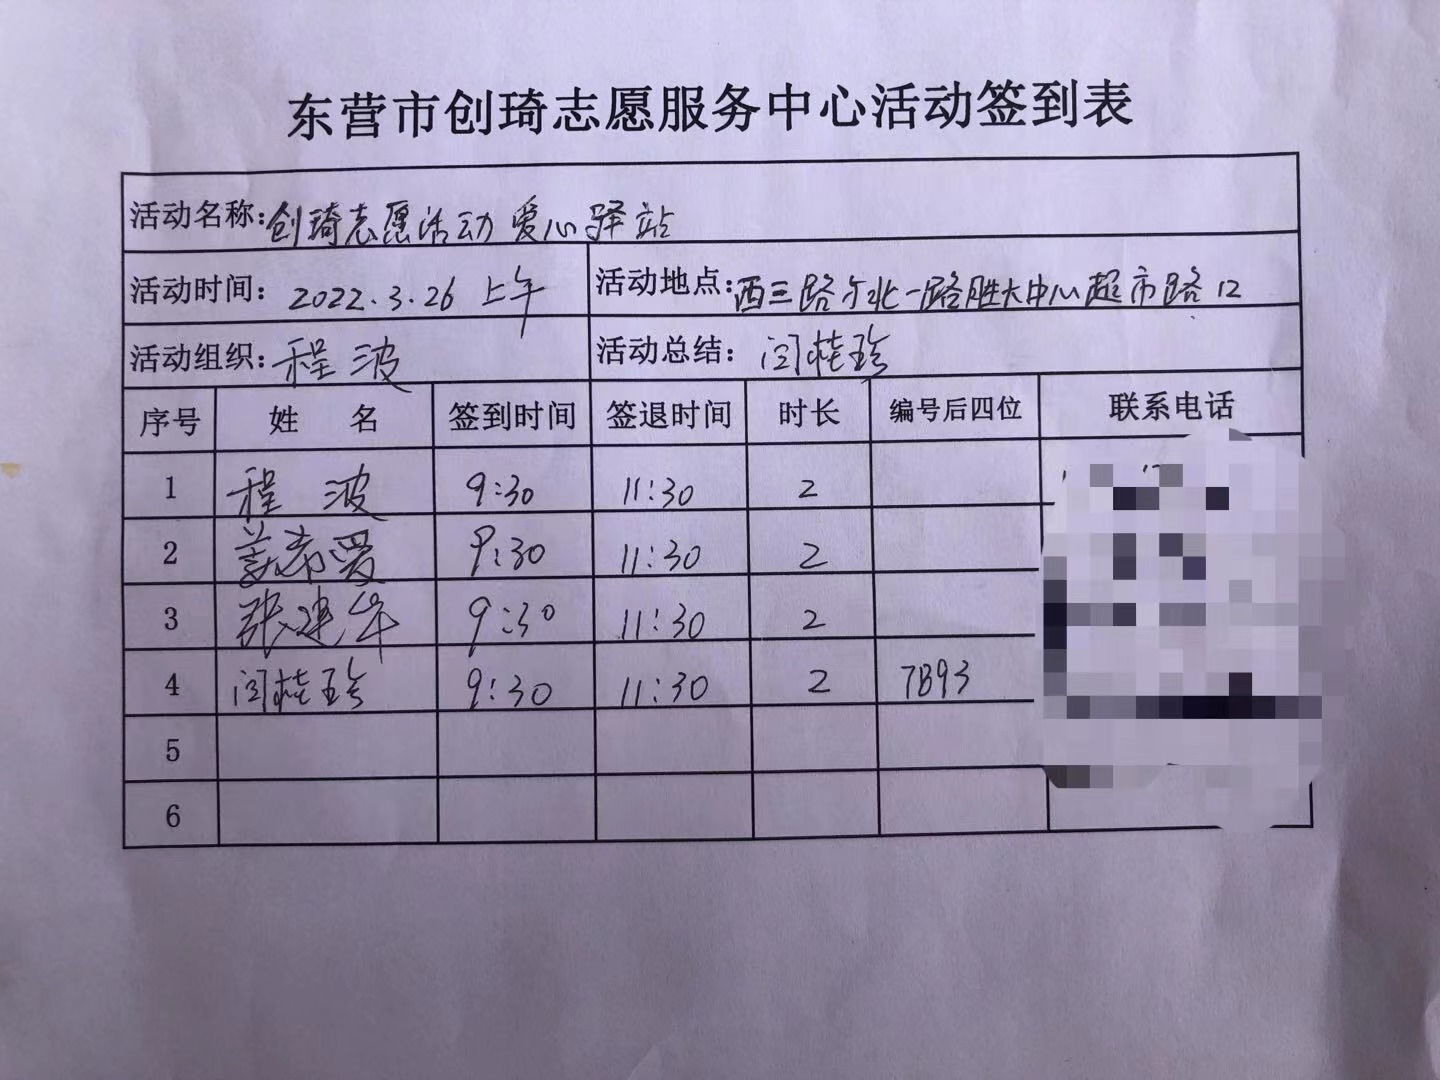 东营市创琦志愿服务中心活动签到表
活动名称：创琦志愿活动 爱心驿站
活动时间：2022.3.26 上午 活动地点：西三路于北一路胜大中心超市路口
活动组织：程波 活动总结：闫桂珍
序号 姓 名 签到时间 签退时间 时长 编号后四位 联系电话
1 程 波 9:30 11:30 2
2 姜希爱 9:30 11:30 2
3 张建华 9:30 11:30 2
4 闫桂珍 9:30 11:30 2 7B93
5
6